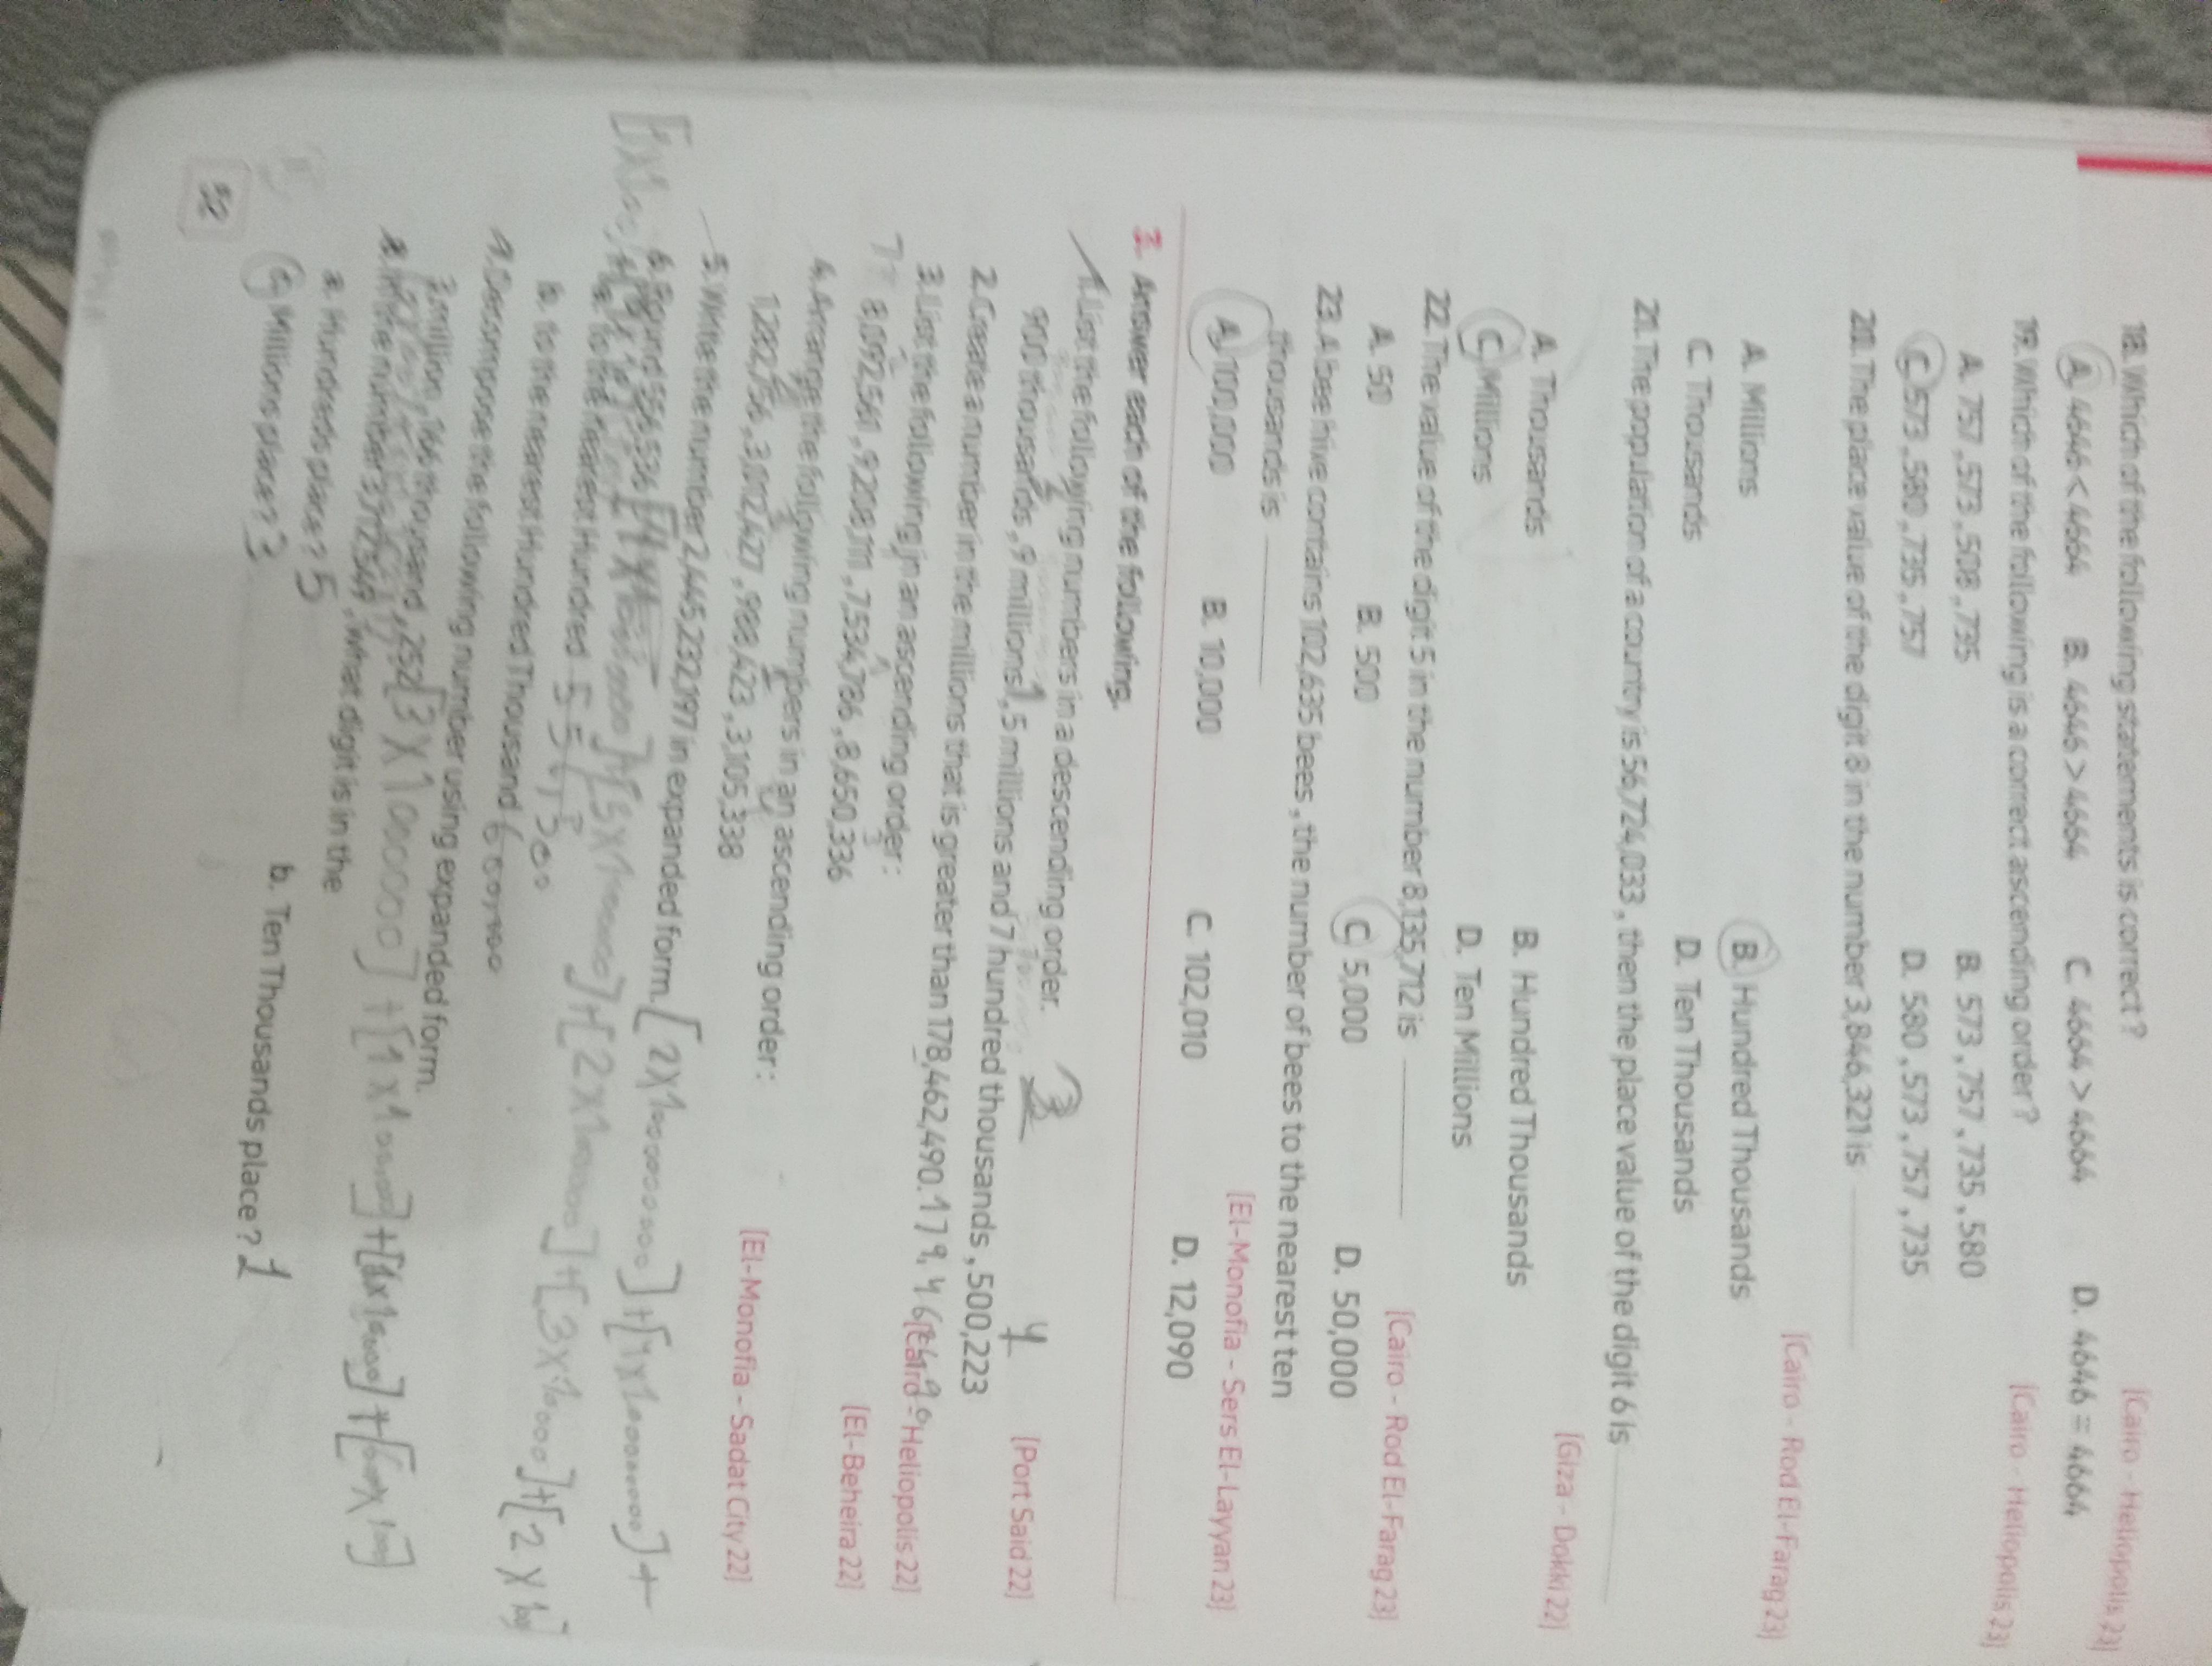 18. Which of the following statements is correct?
[Cairo - Heliopolis 23]
A. 4646 < 4664 B. 4646 > 4664 C. 4664 > 4664 D. 4646 = 4664
19. Which of the following is a correct ascending order?
[Cairo - Heliopolis 23]
A. 757 , 573 , 508 , 735 B. 573 , 757 , 735 , 580
C. 573 , 580 , 735 , 757 D. 580 , 573 , 757 , 735
20. The place value of the digit 8 in the number 3,846,321 is
[Cairo - Rod El-Farag 23]
A. Millions B. Hundred Thousands
C. Thousands D. Ten Thousands
21. The population of a country is 56,724,033 , then the place value of the digit 6 is
[Giza - Dokki 22]
A. Thousands B. Hundred Thousands
C. Millions D. Ten Millions
22. The value of the digit 5 in the number 8,135,712 is
[Cairo - Rod El-Farag 23]
A. 50 B. 500 C. 5,000 D. 50,000
23. A bee hive contains 102,635 bees , the number of bees to the nearest ten
thousands is
[El-Monofia - Sers El-Layyan 23]
A. 100,000 B. 10,000 C. 102,010 D. 12,090
3. Answer each of the following.
1. List the following numbers in a descending order. 3 4
[Port Said 22]
900 thousands , 9 millions , 5 millions and 7 hundred thousands , 500,223
2. Create a number in the millions that is greater than 178,462,490. 179,46
[Cairo - Heliopolis 22]
3. List the following in an ascending order :
[El-Beheira 22]
8,092,561 , 9,208,111 , 7,534,786 , 8,650,336
4. Arrange the following numbers in an ascending order :
[El-Monofia - Sadat City 22]
1,282,756 , 3,012,427 , 988,423 , 3,105,338
5. Write the number 2,445,232,197 in expanded form. [2X1000000000]+
6. Round 556,536
a. to the nearest Hundred
b. to the nearest Hundred Thousand
7. Decompose the following number using expanded form.
3 million , 166 thousand , 252 [3X1000000]
8. In the number 3,712,549 , what digit is in the
a. Hundreds place? 5 b. Ten Thousands place? 1
c. Millions place? 3